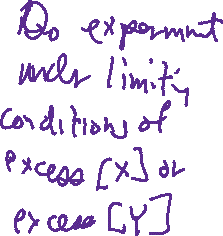 Do experiment
under limitg
conditions of
excess [X] or
excess [Y]